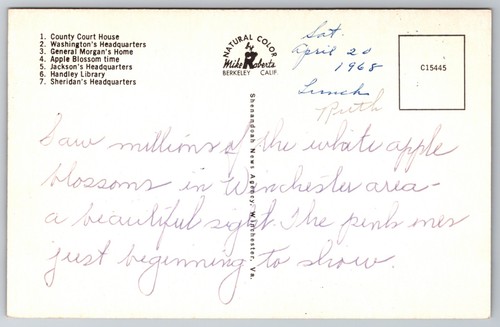 1. County Court House
2. Washington's Headquarters
3. General Morgan's Home
4. Apple Blossom time
5. Jackson's Headquarters
6. Handley Library
7. Sheridan's Headquarters
NATURAL COLOR
by
Mike Roberts
BERKELEY CALIF.
Sat.
April 20
1968
Lunch
Ruth
C15445
Shenandoah News Agency, Winchester, Va.
Saw millions of the white apple
blossoms in Winchester area -
a beautiful sight. The pink ones
just beginning to show.